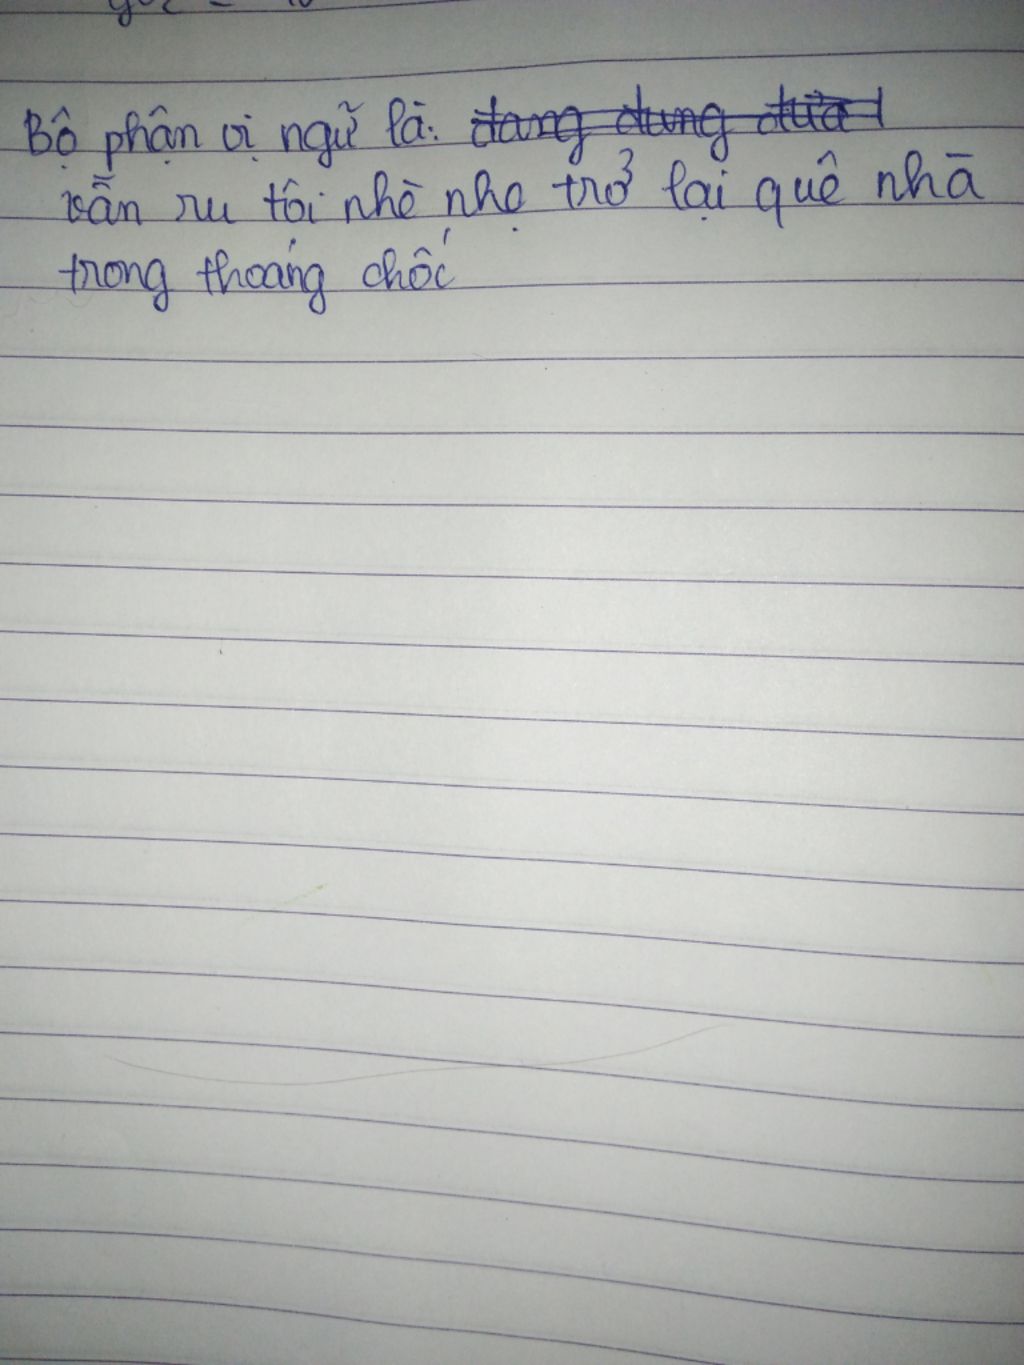 Bộ phận vị ngữ là: đang đung đưa
vẫn ru tôi nhè nhẹ trở lại quê nhà
trong thoáng chốc